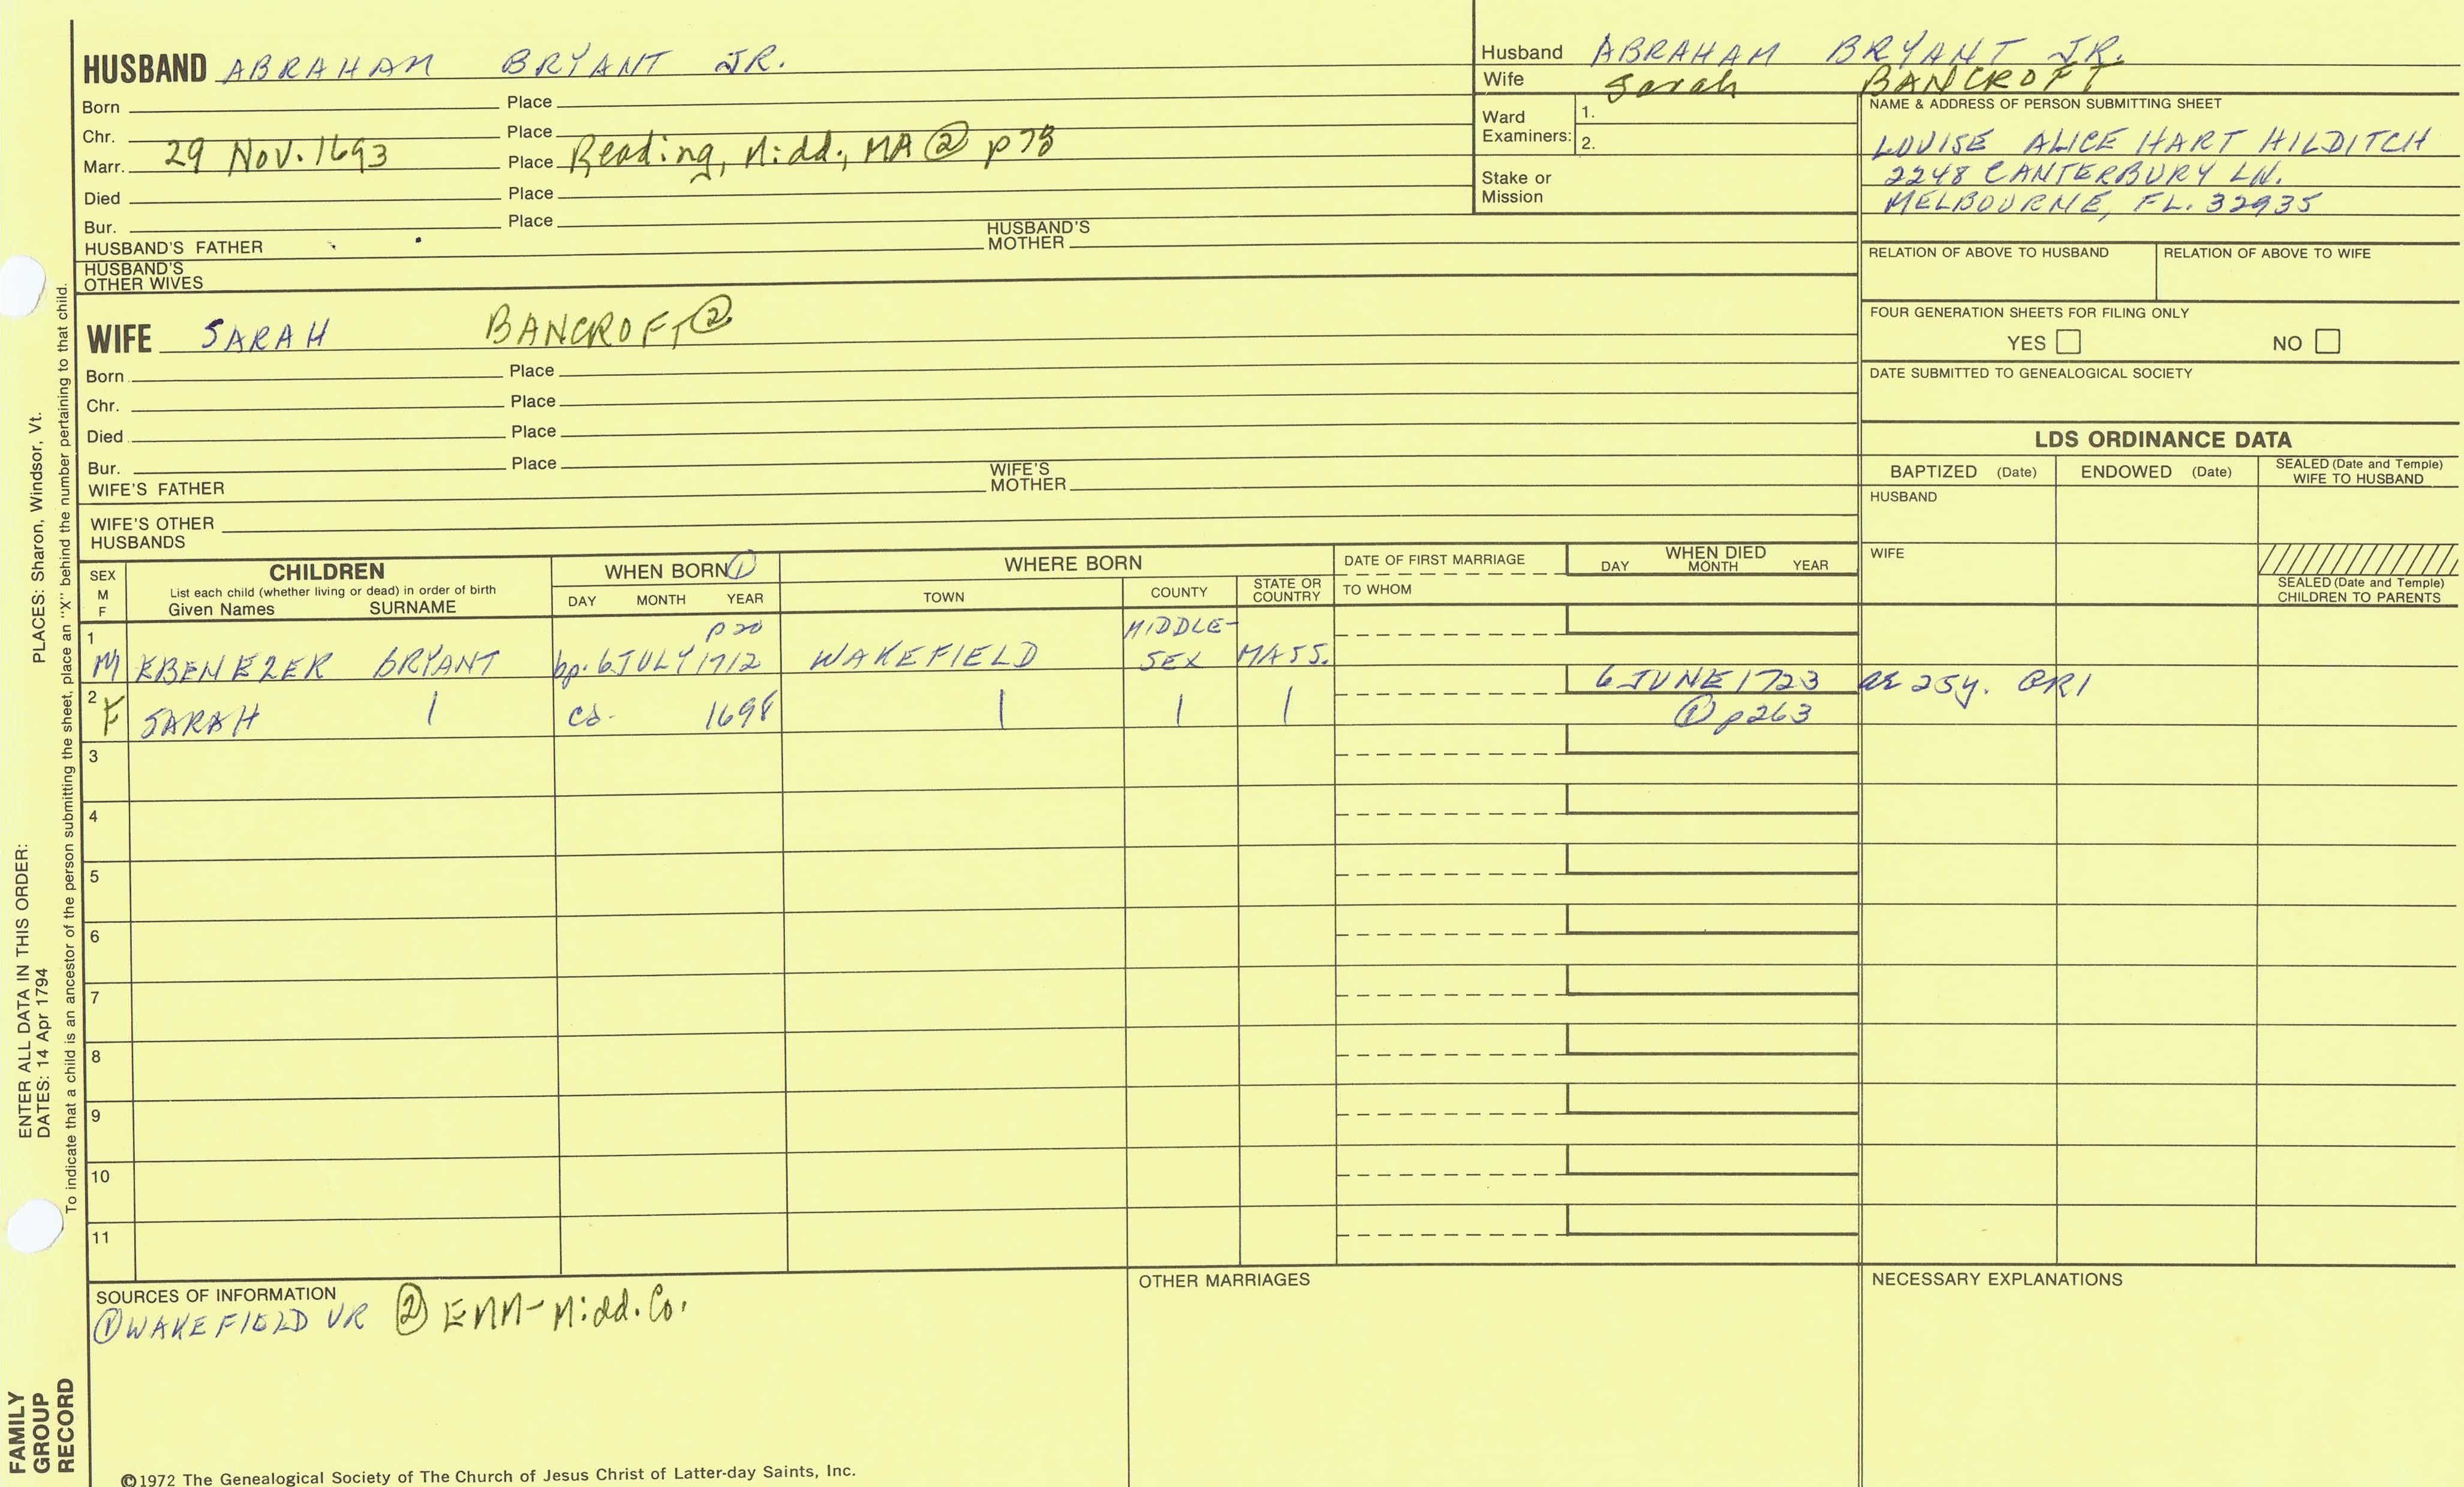 HUSBAND ABRAHAM BRYANT JR.
Born Place
Chr. Place
Marr. 29 Nov. 1693 Place Reading, Midd., MA ② p78
Died Place
Bur. Place
HUSBAND'S FATHER HUSBAND'S MOTHER
HUSBAND'S OTHER WIVES
WIFE SARAH BANCROFT ②
Born Place
Chr. Place
Died Place
Bur. Place
WIFE'S FATHER WIFE'S MOTHER
WIFE'S OTHER HUSBANDS
Husband ABRAHAM BRYANT JR.
Wife Sarah BANCROFT
Ward Examiners: 1.
2.
Stake or Mission
NAME & ADDRESS OF PERSON SUBMITTING SHEET
LOUISE ALICE HART HILDITCH
2248 CANTERBURY LN.
MELBOURNE, FL. 32935
RELATION OF ABOVE TO HUSBAND RELATION OF ABOVE TO WIFE
FOUR GENERATION SHEETS FOR FILING ONLY
YES NO
DATE SUBMITTED TO GENEALOGICAL SOCIETY
LDS ORDINANCE DATA
BAPTIZED (Date) ENDOWED (Date) SEALED (Date and Temple) WIFE TO HUSBAND
HUSBAND
WIFE
SEALED (Date and Temple) CHILDREN TO PARENTS
SEX M F
CHILDREN
List each child (whether living or dead) in order of birth
Given Names SURNAME
WHEN BORN ①
DAY MONTH YEAR
WHERE BORN
TOWN COUNTY STATE OR COUNTRY
DATE OF FIRST MARRIAGE
TO WHOM
WHEN DIED
DAY MONTH YEAR
1 p20 MIDDLE-
M EBENEZER BRYANT bp. 6 JULY 1712 WAKEFIELD SEX MASS.
2 6 JUNE 1723 ae 25y. GR1
F SARAH | ca. 1698 | | | ① p263
3
4
5
6
7
8
9
10
11
SOURCES OF INFORMATION
① WAKEFIELD VR ② EMM-Midd. Co.
OTHER MARRIAGES
NECESSARY EXPLANATIONS
©1972 The Genealogical Society of The Church of Jesus Christ of Latter-day Saints, Inc.
FAMILY GROUP RECORD
ENTER ALL DATA IN THIS ORDER:
DATES: 14 Apr 1794 PLACES: Sharon, Windsor, Vt.
To indicate that a child is an ancestor of the person submitting the sheet, place an "X" behind the number pertaining to that child.